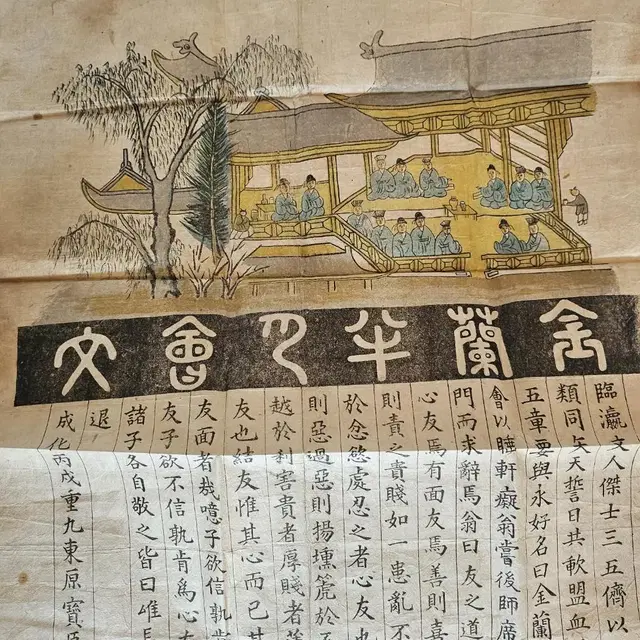 金蘭半月會文
臨瀛文人傑士三五儕以
類同矢天誓日共軟盟血
五章要與永好名曰金蘭
會以睡軒癡翁嘗後師席
門而求辭焉翁曰友之道
心友焉有面友焉善則喜
則責之貴賤如一患亂不
於忿慾處忍之者心友也
則惡過惡則揚壎篪於
越於利害貴者厚賤者
友也結友惟其心而已其
友面者哉噫子欲信孰肯
友子欲不信孰肯爲心
諸子各自敬之皆曰唯
退
成化丙戌重九東原寶